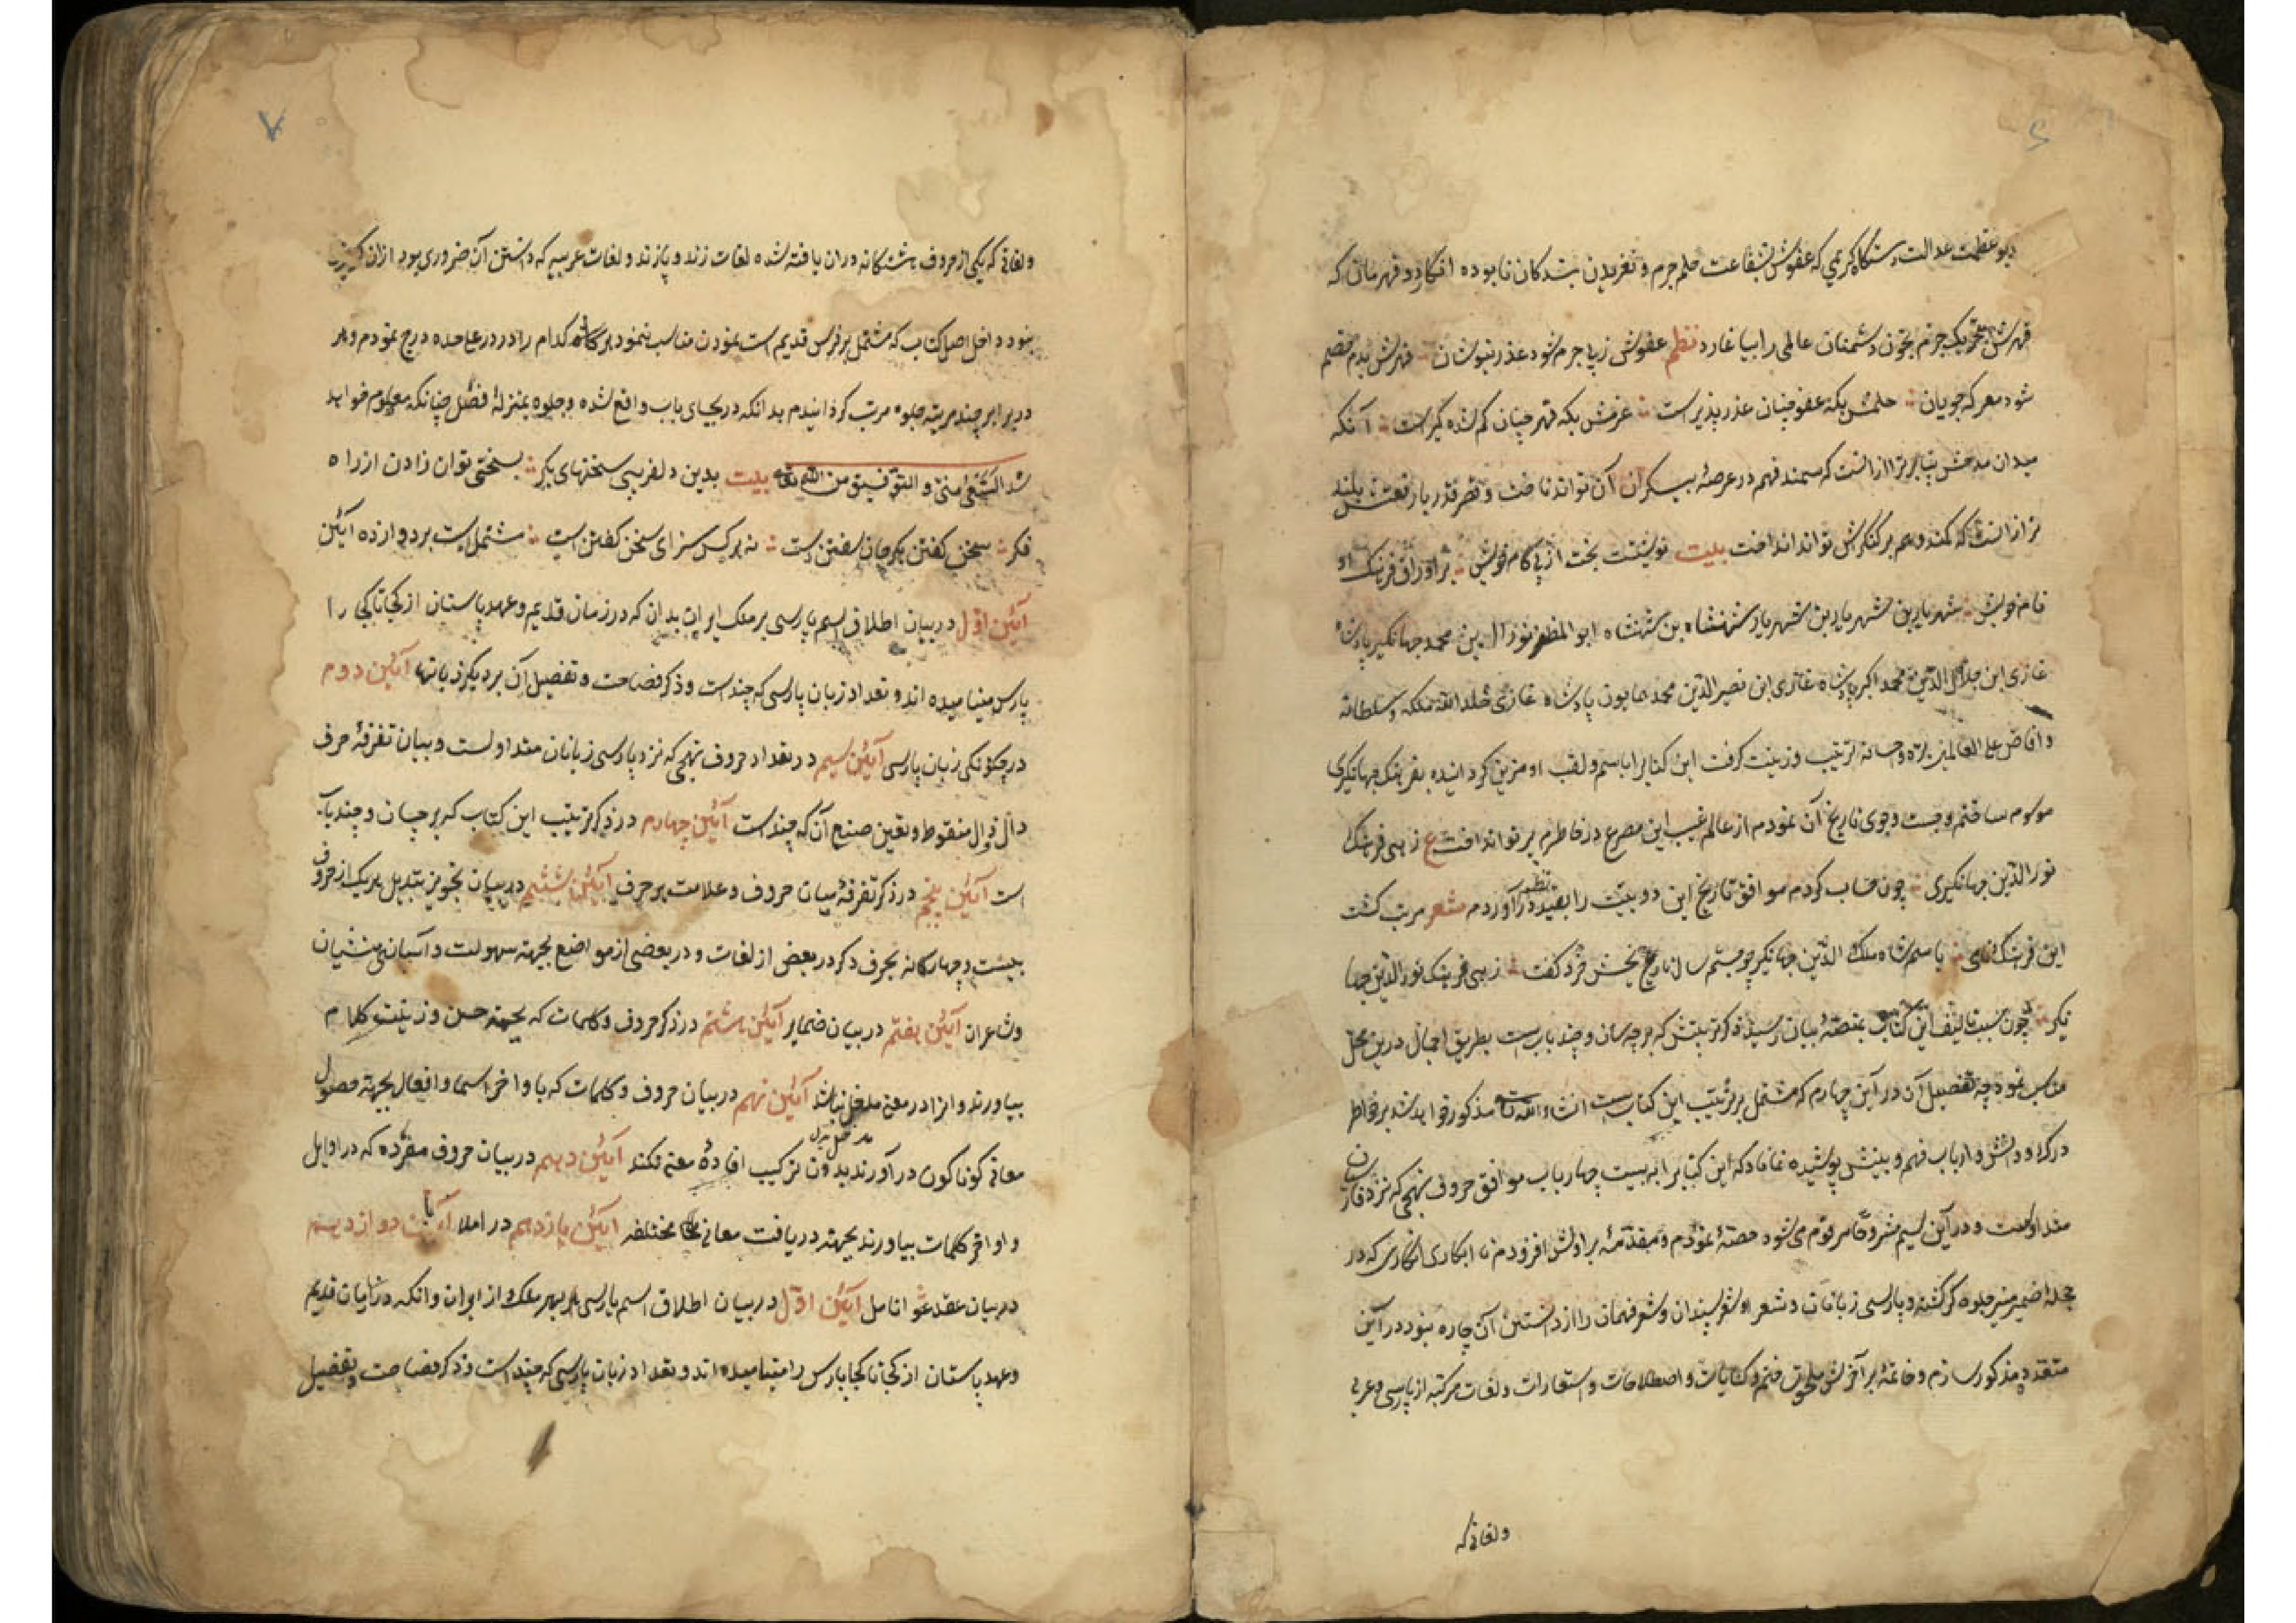 دیو عظمت عدالت دستگاه کریمی که عفوش بشفاعت حلم جرم و تغریدن بندگان نابوده انگارد و قهرمان که
قهرش بتحریک جرم بخون دشمنان عالمی را بیاغارد نظم عفوش زپا جرم شود عذر نیوشان قهرش بدم خصم
شود معرکه جویان حلمش بگه عفو چنان عذر پذیر است عزمش بگه قهر چنان کم شده گیر است آنکه
میدان مدحش پناورتر از انست که سمند فهم در عرصهٔ بیکران آن تواند تاخت و قصر قدر بارفعتش بلند
تر از انست که کمند وهم بر کنگرش تواند انداخت بیت نوشتست بخت از پی کام خویش بر اوراق فرهنگ او
نام خویش شهریار بن شهریار بن شهریار شهنشاه بن شهنشاه ابو المظفر نور الدین محمد جهانگیر پادشاه
غازی ابن جلال الدین محمد اکبر پادشاه غازی ابن نصیر الدین محمد همایون پادشاه غازی خلد الله ملکه و سلطانه
و افاض علی العالمین بره و احسانه ترتیب و زینت گرفت این کتاب را باسم و لقب او مزین گردانیده بفرهنگ جهانگیری
موسوم ساختم و جست و جوی تاریخ آن نمودم از عالم غیب این مصرع در خاطرم پرتو انداخت ع زهی فرهنگ
نور الدین جهانگیری چون حساب کردم موافق تاریخ این دو بیت را بقید نظم در آوردم شعر مرتب گشت
این فرهنگ نامی باسم شاه ملک الدین جهانگیر چو جستم سال تاریخش خرد گفت زهی فرهنگ نور الدین جها
نگیر چون سبب تالیف این کتاب بمنصهٔ بیان رسید ذکر ترتیبش که بر چه سان و چند بابست بطریق اجمال درین محل
مناسب نمود چه تفصیل آن در آیین چهارم که مشتمل بر ترتیب این کتابست انشاء الله تعالی مذکور خواهد شد بر خواطر
درک و دانش و ارباب فهم و بینش پوشیده نماناد که این کتاب را به بیست چهار باب موافق حروف تهجی که نزد فارسیان
متداولست و در آیین سیم مشروحا مرقوم می شود حصه نمودم و مقدمهٔ بر اولش افزودم تا ابکاری افکاری که در
حجلهٔ ضمیر منیر جلوه گر گشته و پارسی زبانان و شعرا و شعر پسندان و شعر فهمان را از دانستن آن چاره نبود در آیین
متعدد مذکور سازم و خاتمهٔ بر آخرش ملحق ختم و کنایات و اصطلاحات و استعارات و لغات مرکبه از پارسی و عربی
ولغاتی که
ولغاتی که یکی از حروف هشتگانه دران یافته شده لغات زند و پازند و لغات عربیه که دانستن آن ضروری بود ازان گریز
نبود داخل اصل کتاب که مشتمل بر فرس قدیم است نمودن مناسب ننمود هر کدام را در در علاحده درج نمودم و هر
در برابر چند مرتبه جلوه مرتب گردانیدم بدانکه در بجای باب واقع شده و جلوه بمنزلهٔ فصل چنانکه معلوم خواهد
شد السعی منی و التوفیق من الله تعالی بیت بدین دلفریبی سخنهای بکر بسختی توان زادن از راه
فکر سخن گفتن بکر جان سفتن است نه هر کس سزای سخن گفتن است مشتمل است بر دوازده آیین
آیین اول در بیان اطلاق اسم پارسی بر ملک ایران بدان که در زمان قدیم و عهد پاستان از کجا تا کجا را
پارس مینامیده اند و تعداد زبان پارسی که چند است و ذکر فصاحت و تفضیل آن بر دیگر زبانها آیین دوم
در چگونگی زبان پارسی آیین سیم در تعداد حروف تهجی که نزد پارسی زبانان متداولست و بیان تفرقهٔ حرف
دال و ذال منقوط و تعین صنع آن که چند است آیین چهارم در ذکر ترتیب این کتاب که بر چسان و چند باب
است آیین پنجم در ذکر تفرقهٔ میان حروف و علامت هر حرف آیین ششم در بیان تجویز تبدیل هر یک از حروف
بیست و چهارگانه بحرف دگر در بعض از لغات و در بعضی از مواضع بجهته سهولت و آسانی منشیان
و شاعران آیین هفتم در بیان ضمایر آیین هشتم در ذکر حروف و کلمات که بجهته حسن و زینت کلام
بیاورند و انرا در معنی مدخل نباشد آیین نهم در بیان حروف و کلمات که با واخر اسما و افعال بجهته حصول
معانی گوناگون در آورند بدون ترکیب افادهٔ معنی نکند آیین دهم در بیان حروف مفرده که در اوایل
و اواخر کلمات بیاورند بجهته دریافت معانی مختلفه آیین یازدهم در املا آیین دوازدهم
در بیان عقد انامل آیین اول در بیان اطلاق اسم پارسی بهر ملک از ایران و انکه در زمان قدیم
و عهد پاستان از کجا تا کجا پارس را مینامیده اند و تعداد زبان پارسی که چند است و ذکر فصاحت و تفضیل